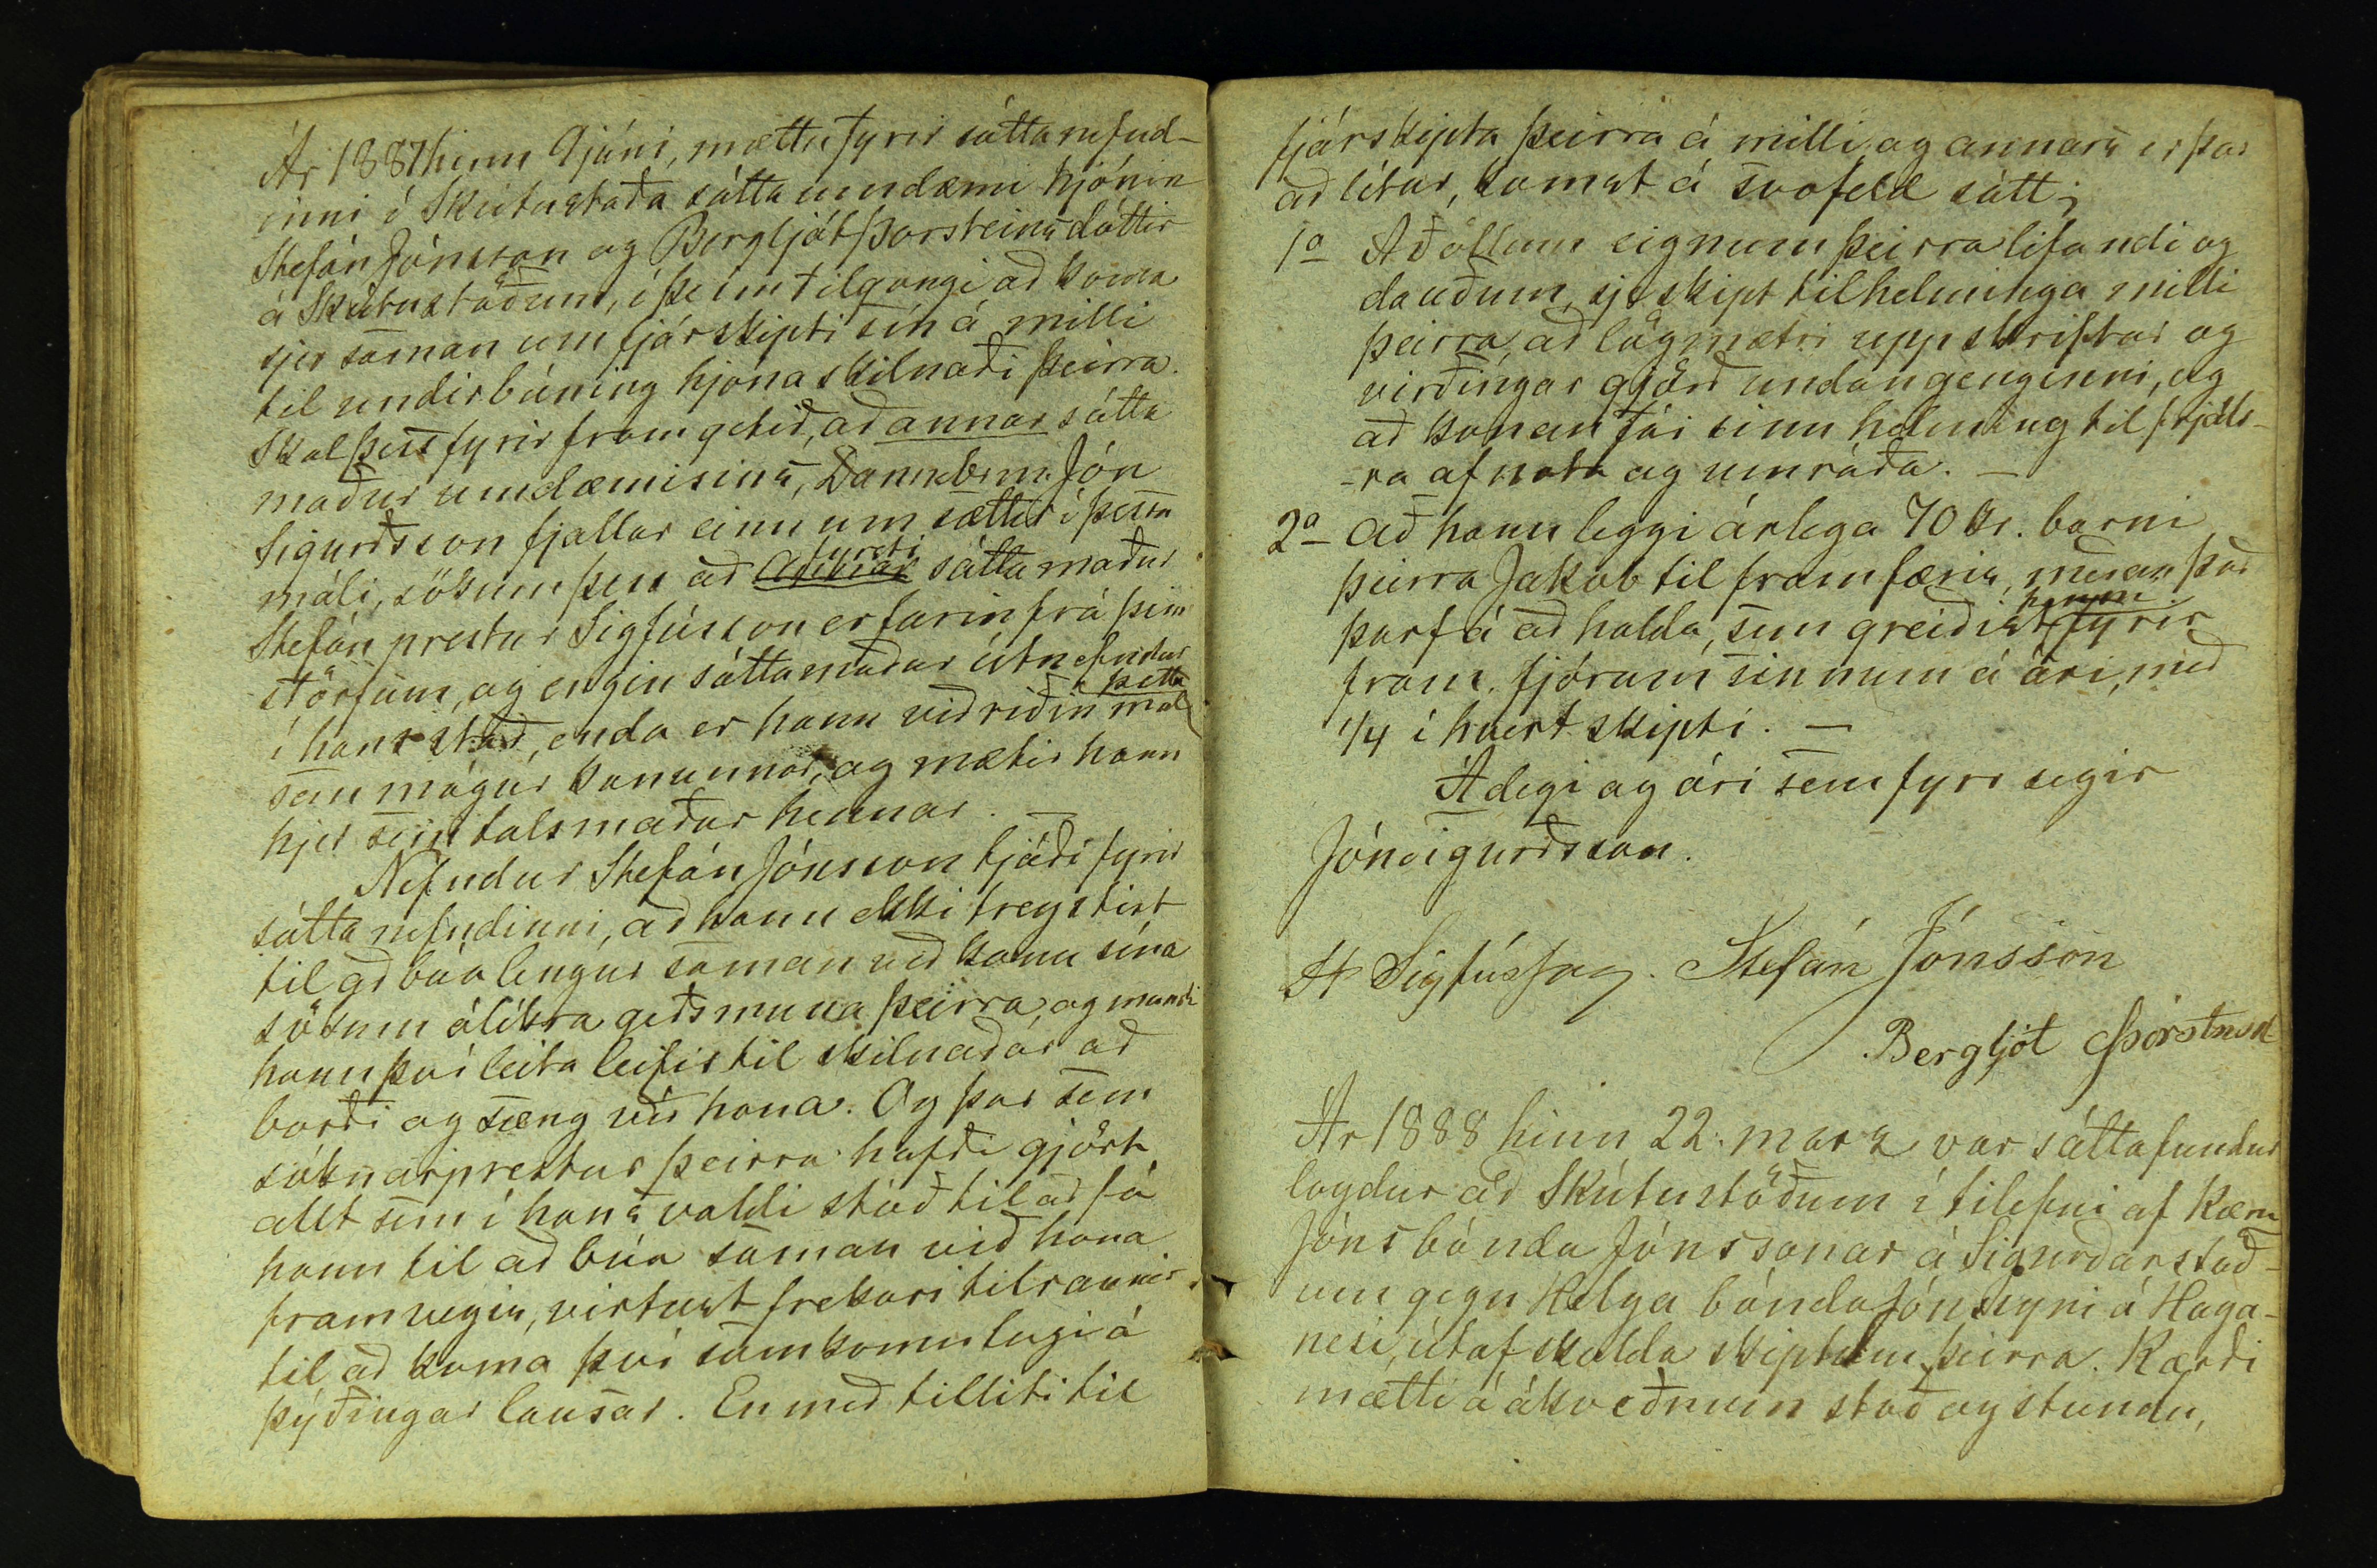 Ár 1887 hinn 9 júni, mættu fyrir sáttanefnd-
inni í Skútustaða sáttaumdæmi hjónin
Stefán Jónsson og Bergljót Þorsteinsdóttir
á Skútustöðum, í þeim tilgangi að koma
sjer saman um fjárskipti sín á milli
til undirbúning hjónaskilnaði þeirra.
Skal þess fyrir fram getið, að annar sátta
maður umdæmisins, Dannebrm. Jón
Sigurðsson fjallar einn um sættir í þessu
máli, sökum þess að fyrsti sáttamaður
Stefán prestur Sigfússon er farin frá þeim
störfum, og engin sáttamaður útnefndur
í hans stað, enda er hann viðriðin þetta mál
sem mágur konunnar, og mætir hann
hjer sem talsmaður hennar. —
Nefndur Stefán Jónsson tjáði fyrir
sáttanefndinni, að hann ekki treystist
til að búa lengur saman við konu sína
sökum ólíkra geðsmuna þeirra, og mundi
hann því leita leifis til skilnaðar að
borði og sæng við hana. Og þar sem
sóknarprestur þeirra hafði gjört
allt sem í hans valdi stóð til að fá
hann til að búa saman við hana
framvegis, virtust frekari tilraunir
til að koma því samkomulagi á
þýðingar lausar. En með tilliti til
fjárskipta þeirra á milli og annars er þar
að lítur, komst á svofeld sátt;
1o Að öllum eignum þeirra lifandi og
dauðum, sje skipt til helminga milli
þeirra, að lögmætri uppskriftar og
virðingar gjörð undangenginni, og
að konan fái sinn helming til frjáls-
-ra afnota og umráða. —
2o að hann leggi árlega 70 kr. barni
þeirra Jakob til framfæris, meðan það
þarf á að halda, sem greiðist honum fyrir
fram fjórum sinnum á ári, með
1/4 í hvert skipti. —
Á degi og ári sem fyrr segir
Jón Sigurðsson.
St Sigfússon. Stefán Jónsson
Bergljót Þórstnsd
Ár 1888 hinn 22. mars var sáttafundur
lagdur að Skútustöðum í tilefni af kæru
Jóns bónda Jónssonar á Sigurðarstöð-
um gegn Helga bónda Jónssyni á Haga-
nesi, útaf skulda skiptum þeirra. Kærði
mætti á ákveðnum stað og stundu,